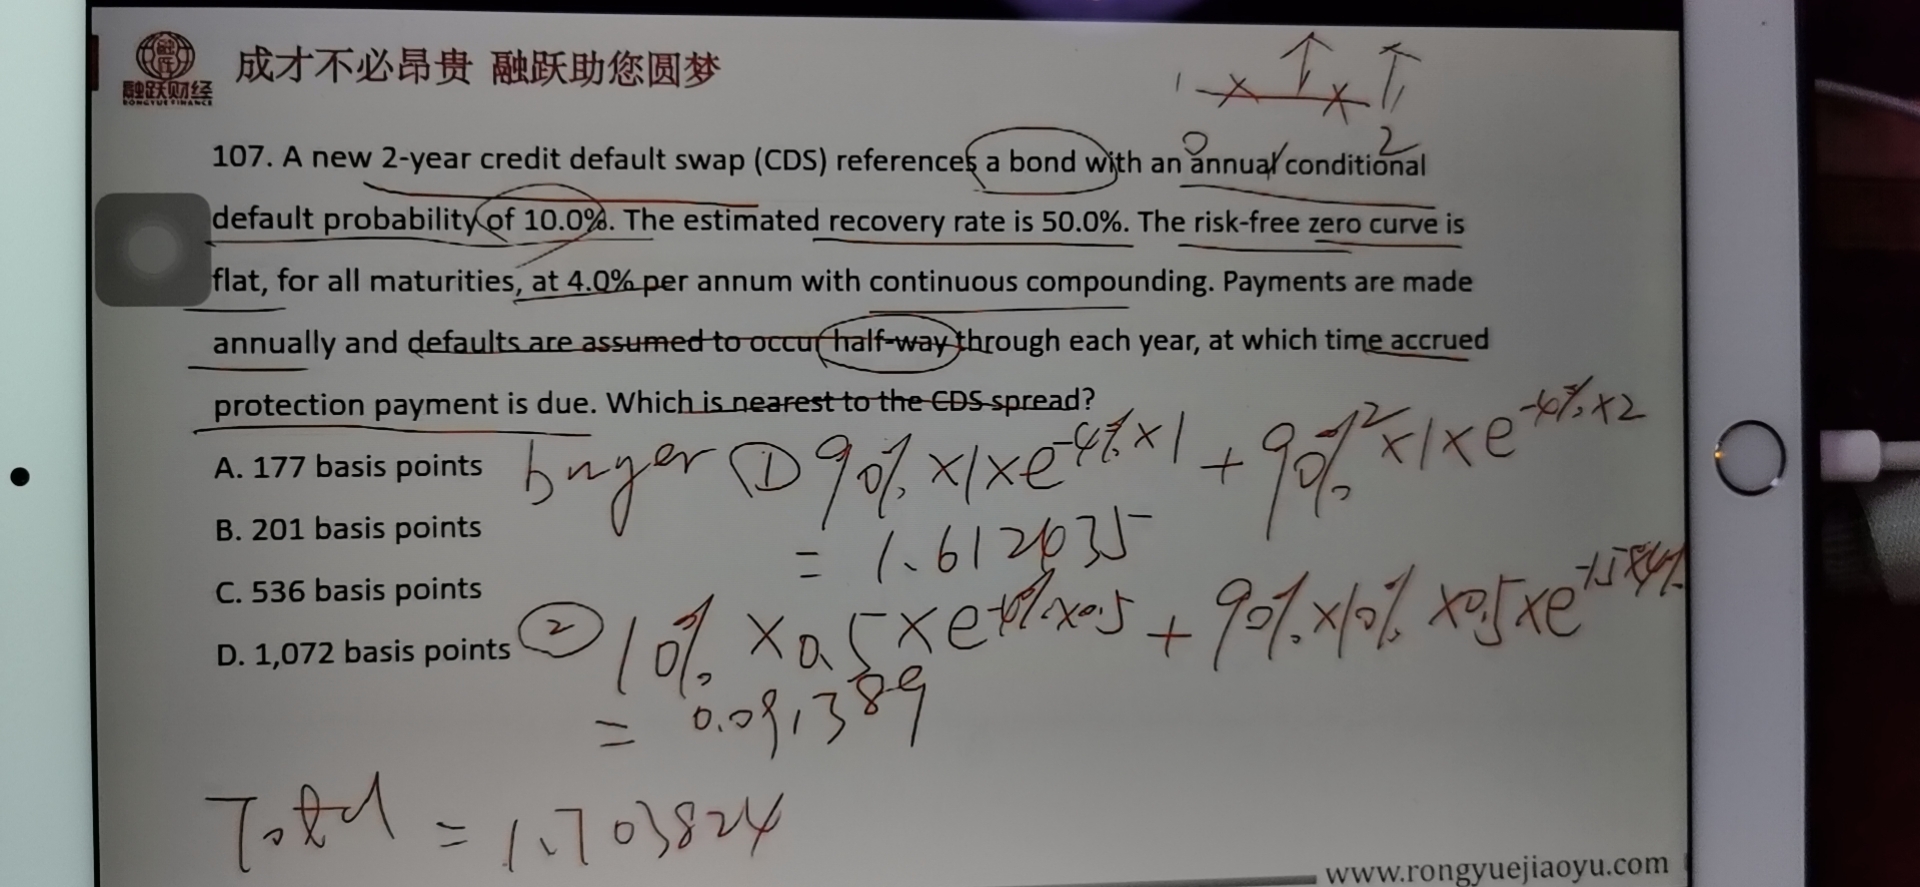 融跃财经
RONGYUE FINANCE
成才不必昂贵 融跃助您圆梦
1 1
0 2
107. A new 2-year credit default swap (CDS) references a bond with an annual conditional
default probability of 10.0%. The estimated recovery rate is 50.0%. The risk-free zero curve is
flat, for all maturities, at 4.0% per annum with continuous compounding. Payments are made
annually and defaults are assumed to occur half-way through each year, at which time accrued
protection payment is due. Which is nearest to the CDS spread?
A. 177 basis points
B. 201 basis points
C. 536 basis points
D. 1,072 basis points
buyer ① 90%×1×e^-4%×1 + 90%²×1×e^-4%×2
= 1.612435
② 10%×0.5×e^-4%×0.5 + 90%×10%×0.5×e^-1.5×4%
= 0.091389
Total = 1.703824
www.rongyuejiaoyu.com